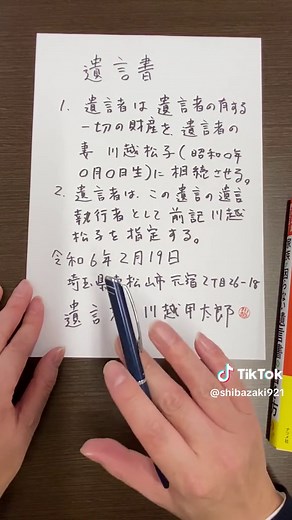 遺言書
1. 遺言者は遺言者の有する
一切の財産を遺言者の
妻 川越松子(昭和0年
0月0日生)に相続させる。
2. 遺言者は、この遺言の遺言
執行者として前記川越
松子を指定する。
令和6年2月19日
埼玉県東松山市元宿2丁目26-18
遺言 川越甲太郎
TikTok
@shibazaki921